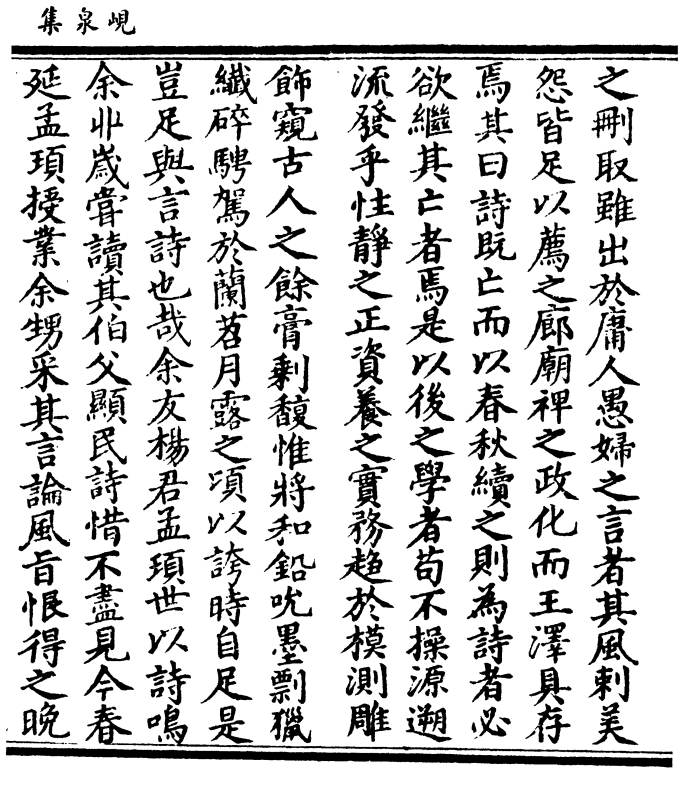 峴泉集
之刪取雖出於庸人愚婦之言者其風刺美
怨皆足以薦之廊廟裨之政化而王澤具存
焉其曰詩旣亡而以春秋續之則為詩者必
欲繼其亡者焉是以後之學者苟不操源遡
流發乎性靜之正資養之實務趨於模測雕
飾窺古人之餘膏剩馥惟將和鉛吮墨剽獵
纖碎騁駕於蘭苕月露之頃以誇時自足是
豈足與言詩也哉余友楊君孟頊世以詩鳴
余丱嵗嘗讀其伯父顯民詩惜不盡見今春
延孟頊授業余甥采其言論風旨恨得之晚